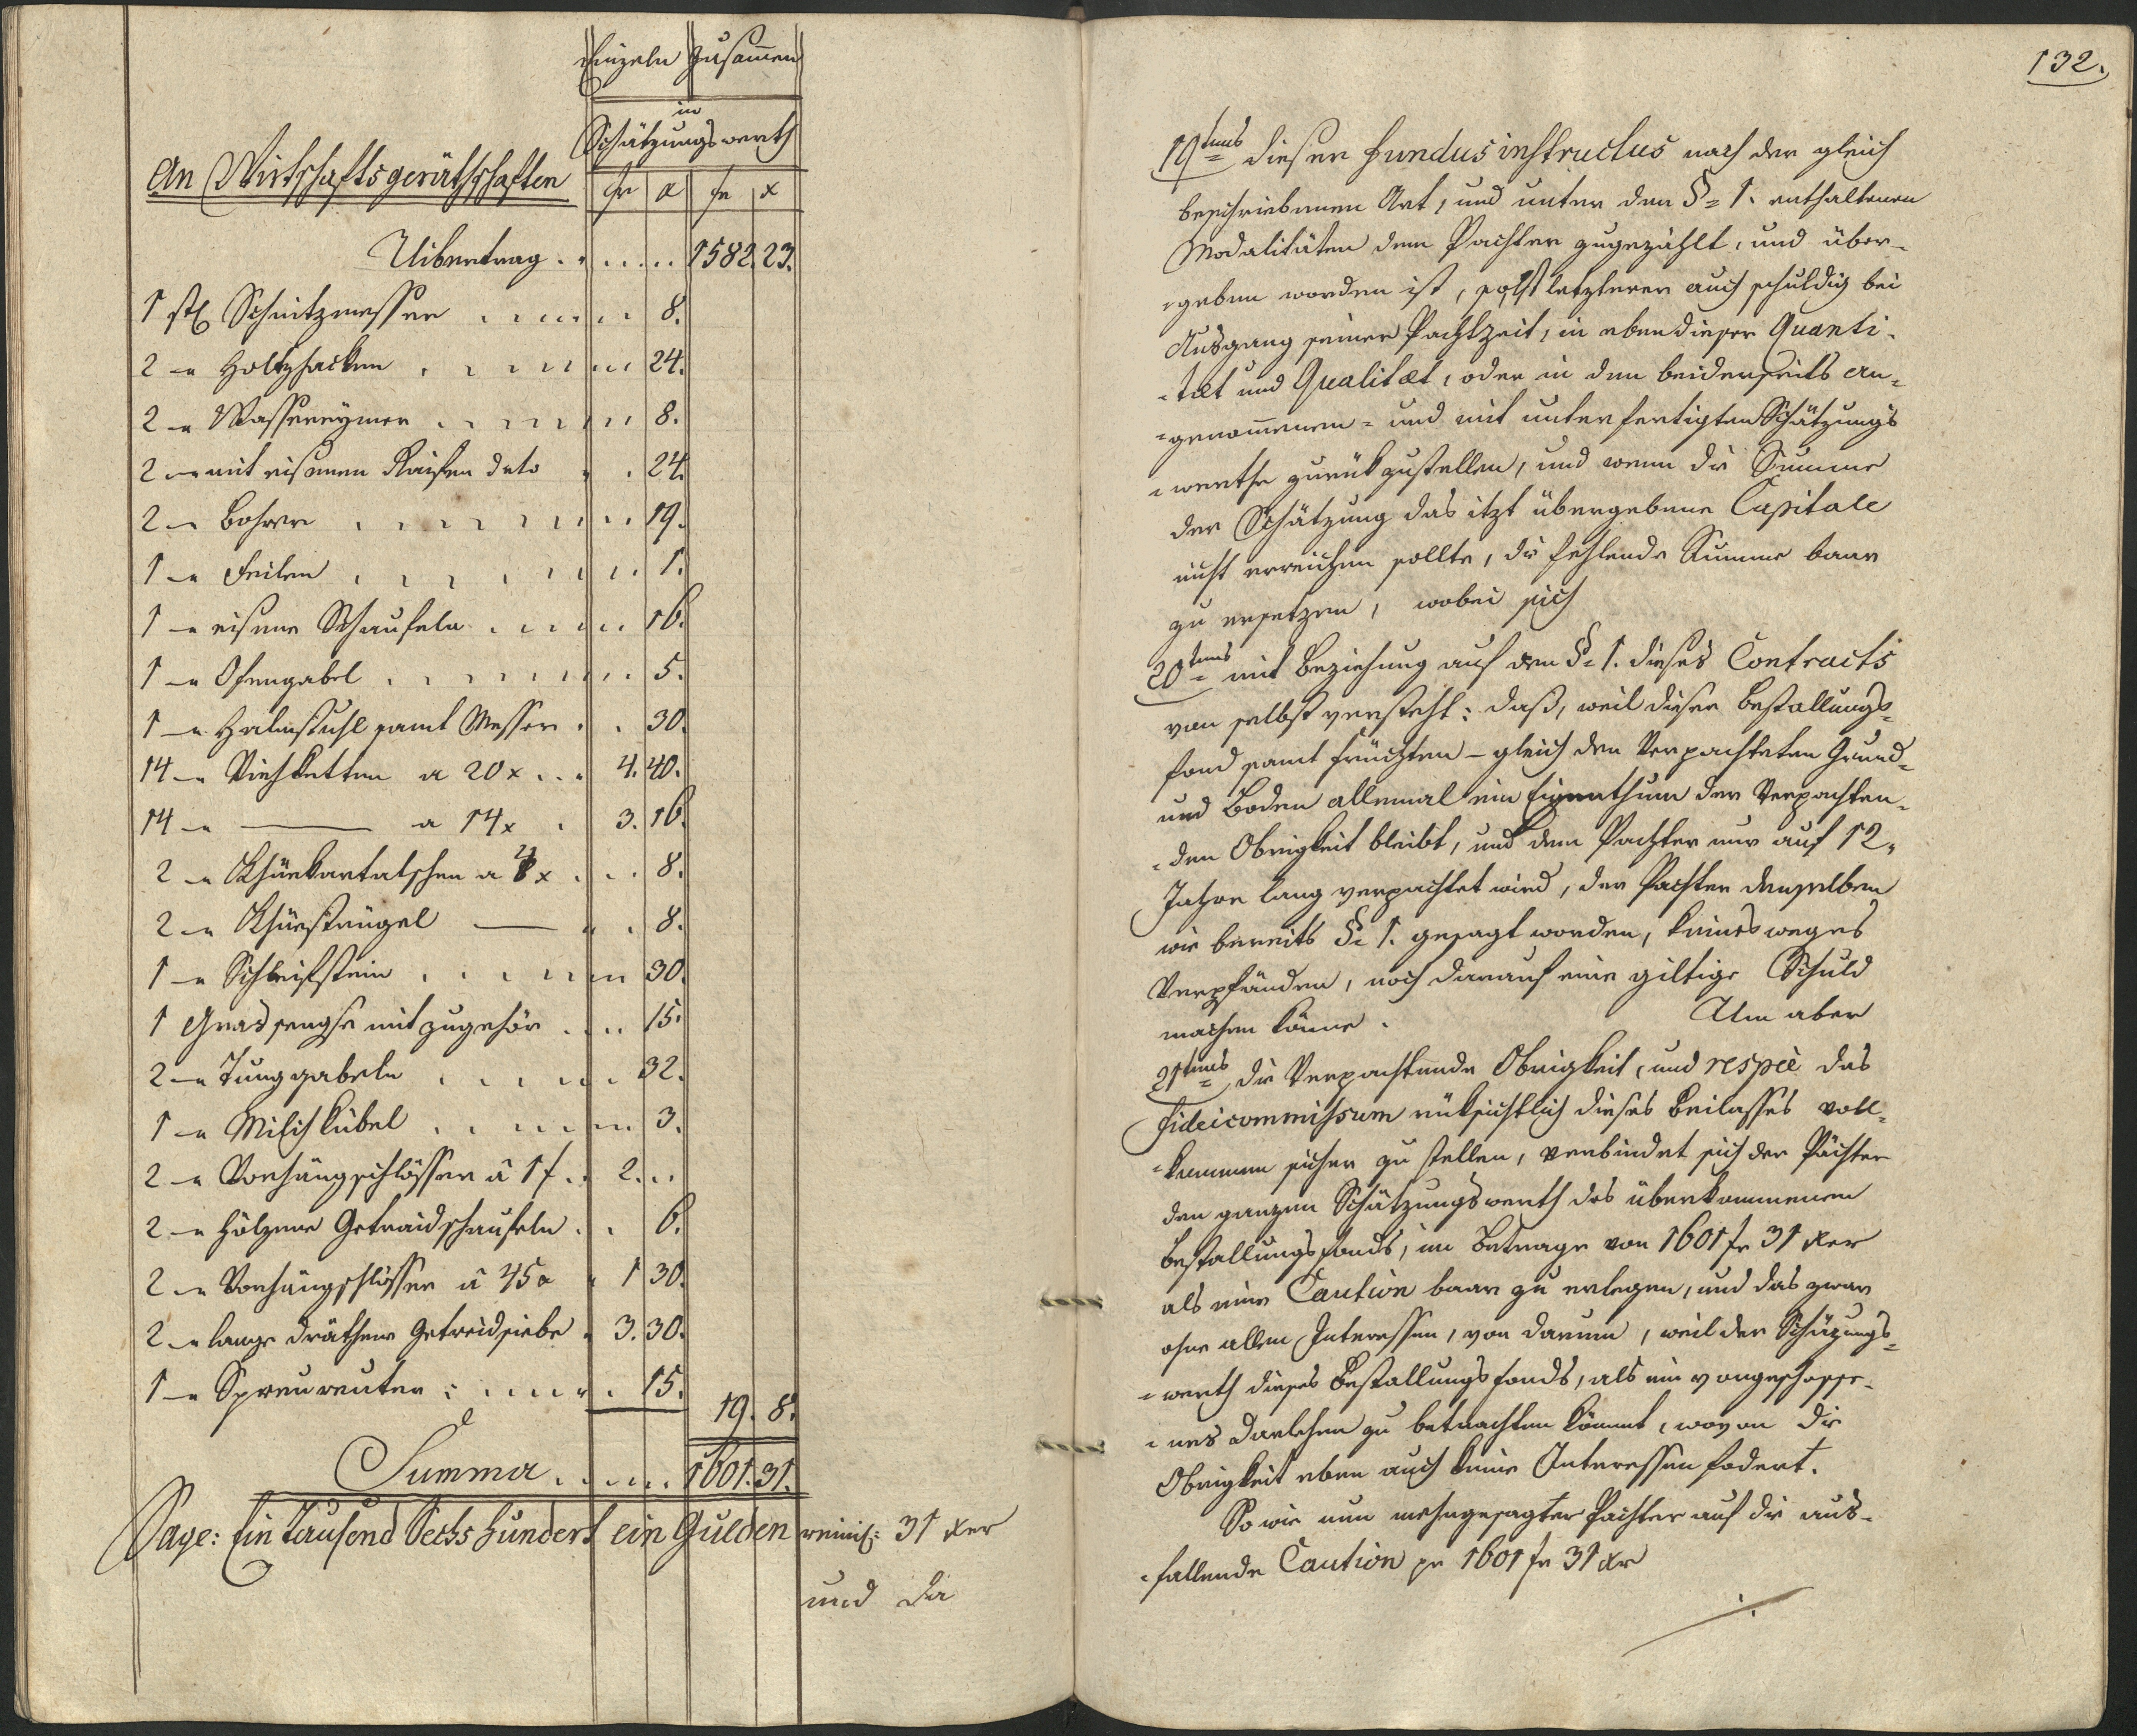 Einzeln Zusam̄en
in
Schätzungswerth
An Wirthschaftsgeräthschaften
fr x fr x
Uibertrag . . . . . . 1582. 23.
1 stk Schnitzmesser . . . . . 8.
2 — Holtzhacken . . . . . 24.
2 — Wassereymer . . . . . 8.
2 — mit eisenen Raifen deto . . 24.
2 — Bohrer . . . . . 19.
1 — Feilen . . . . . 1.
1 — eisene Schaufeln . . . . . 16.
1 — Ofengabel . . . . . 5.
1 — Halmstuhl samt Messer . . 30.
14 — Viehketten a 20 x . . . 4. 40.
14 — ——— a 14 x . 3. 16.
2 — Khüekartatschen a 4 x . . . 8.
2 — Khüestrügel —— . . 8.
1 — Schleifstein . . . . . 30.
1 Gras sengse mit zugehör . . . . 15.
2 — Tunggabeln . . . . . 32.
1 — Milchkübel . . . . . 3.
2 — Vorhängschlösser â 1 f . . 2. . .
2 — hölzene Getraidschaufeln . . 6.
2 — Vorhängschlösser â 45 x . 1 30.
2 — lange dräthene Getreidsiebe . 3. 30.
1 — Spreureuter : . . . . . 15.
19. 8.
Summa . . . . . 1601. 31.
Sage: Ein Tausend Sechshundert ein Gulden reinis: 31 xer
und da
132.
19tens dieser Fundus instructus nach der gleich
beschriebenen Art, und unter den §= 1. enthaltenen
Modalitäten dem Pachter zugezählt, und über-
-geben worden ist, so ist letzterer auch schuldig bei
Ausgang seiner Pachtzeit, in eben dieser Quanti-
-tæt und Qualitæt, oder in den beiderseits an-
-genom̄enen = und mit unterfertigten Schätzungs
-werthe zurükzustellen, und wenn die Summe
der Schätzung das itzt übergebene Capitale
nicht erreichen sollte, die fehlende Summe baar
zu ersetzen, wobei sich
20tens mit Beziehung auf den §= 1. dieses Contracts
von selbst versteht: daß, weil dieser Bestallungs-
fond samt Früchten – gleich den Verpachteten Grund-
und Boden allemal ein Eigenthum der Verpachten-
-den Obrigkeit bleibt, und dem Pachter nur auf 12.
Jahre lang verpachtet wird, der Pachter denselben
wie bereits §= 1. gesagt worden, keinesweges
Verpfänden, noch darauf eine giltige Schuld
machen könne. Um aber
21tens die Verpachtende Obrigkeit, und respẽ das
Fideicommissum rüksichtlich dieses Beilasses voll-
-kommen sicher zu stellen, verbindet sich der Pächter
den ganzen Schätzungswerth des überkommenen
Bestallungsfonds, im Betrage von 1601 fr 31 xer
als eine Caution baar zu erlegen, und das zwar
ohne allen Interessen, von darum, weil der Schäzungs-
-werth dieses Bestallungsfonds, als ein vorgeschosse-
-nes Darlehen zu betrachten kömmt, wovon die
Obrigkeit eben auch keine Interessen fodert.
So wie nun mehrgesagter Pachter auf die aus-
-fallende Caution pr 1601 fr 31 xr
./.